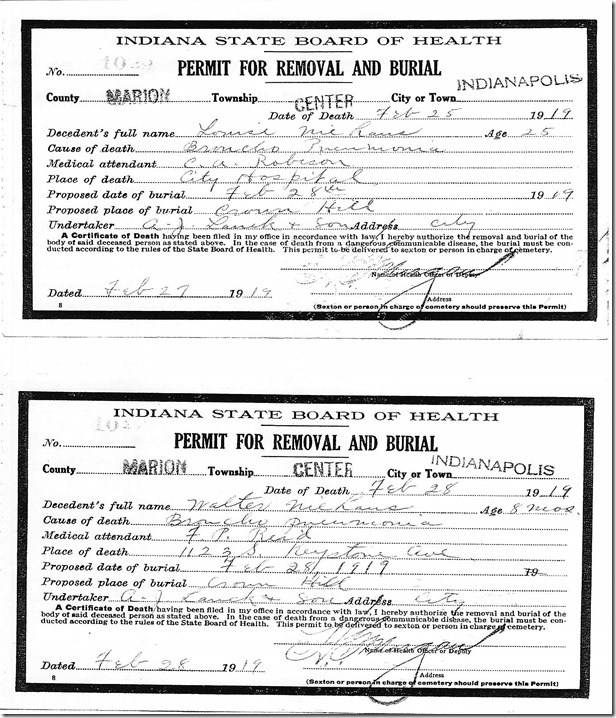 INDIANA STATE BOARD OF HEALTH
No.
PERMIT FOR REMOVAL AND BURIAL
County MARION Township CENTER City or Town INDIANAPOLIS
Date of Death Feb 25 1919
Decedent's full name Louise Niehaus Age 25
Cause of death Broncho Pneumonia
Medical attendant C. A. Robison
Place of death City Hospital
Proposed date of burial Feb 28th 1919
Proposed place of burial Crown Hill
Undertaker A J Lauck & Son Address City
A Certificate of Death having been filed in my office in accordance with law, I hereby authorize the removal and burial of the
body of said deceased person as stated above. In the case of death from a dangerous communicable disease, the burial must be con-
ducted according to the rules of the State Board of Health. This permit to be delivered to sexton or person in charge of cemetery.
Name of Health Officer or Deputy
Dated Feb 27 1919
Address
8 (Sexton or person in charge of cemetery should preserve this Permit)
INDIANA STATE BOARD OF HEALTH
No.
PERMIT FOR REMOVAL AND BURIAL
County MARION Township CENTER City or Town INDIANAPOLIS
Date of Death Feb 28 1919
Decedent's full name Walter Niehaus Age 8 mos.
Cause of death Broncho pneumonia
Medical attendant F. P. Reid
Place of death 1123 S Keystone Ave
Proposed date of burial Feb 28, 1919 19
Proposed place of burial Crown Hill
Undertaker A-J Lauck & Son Address City
A Certificate of Death having been filed in my office in accordance with law, I hereby authorize the removal and burial of the
body of said deceased person as stated above. In the case of death from a dangerous communicable disease, the burial must be con-
ducted according to the rules of the State Board of Health. This permit to be delivered to sexton or person in charge of cemetery.
Name of Health Officer or Deputy
Dated Feb 28 1919
Address
8 (Sexton or person in charge of cemetery should preserve this Permit)